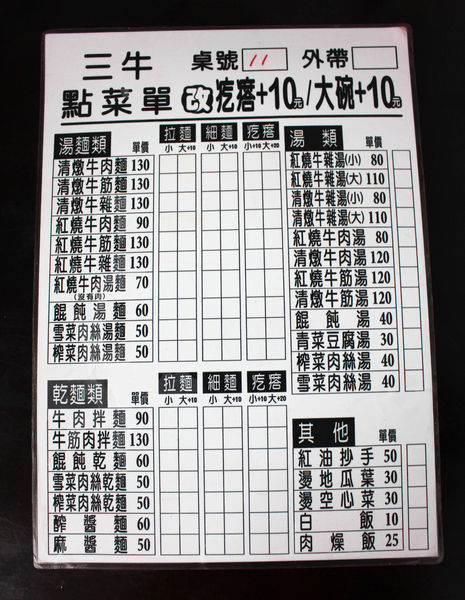 三牛 桌號 11 外帶
點菜單 改 疙瘩+10元/大碗+10元
湯麵類 單價 拉麵 細麵 疙瘩
小 大+10 小 大+10 小+10 大+20
清燉牛肉麵 130
清燉牛筋麵 130
清燉牛雜麵 130
紅燒牛肉麵 90
紅燒牛筋麵 130
紅燒牛雜麵 130
紅燒牛肉湯麵 70
(沒有肉)
餛飩湯麵 60
雪菜肉絲湯麵 50
榨菜肉絲湯麵 50
乾麵類 單價 拉麵 細麵 疙瘩
小 大+10 小 大+10 小+10 大+20
牛肉拌麵 90
牛筋肉拌麵 130
餛飩乾麵 60
雪菜肉絲乾麵 50
榨菜肉絲乾麵 50
醡醬麵 60
麻醬麵 50
湯類 單價
紅燒牛雜湯(小) 80
紅燒牛雜湯(大) 110
清燉牛雜湯(小) 80
清燉牛雜湯(大) 110
紅燒牛肉湯 80
清燉牛肉湯 120
紅燒牛筋湯 120
清燉牛筋湯 120
餛飩湯 40
青菜豆腐湯 30
榨菜肉絲湯 40
雪菜肉絲湯 40
其他 單價
紅油抄手 50
燙地瓜葉 30
燙空心菜 30
白飯 10
肉燥飯 25